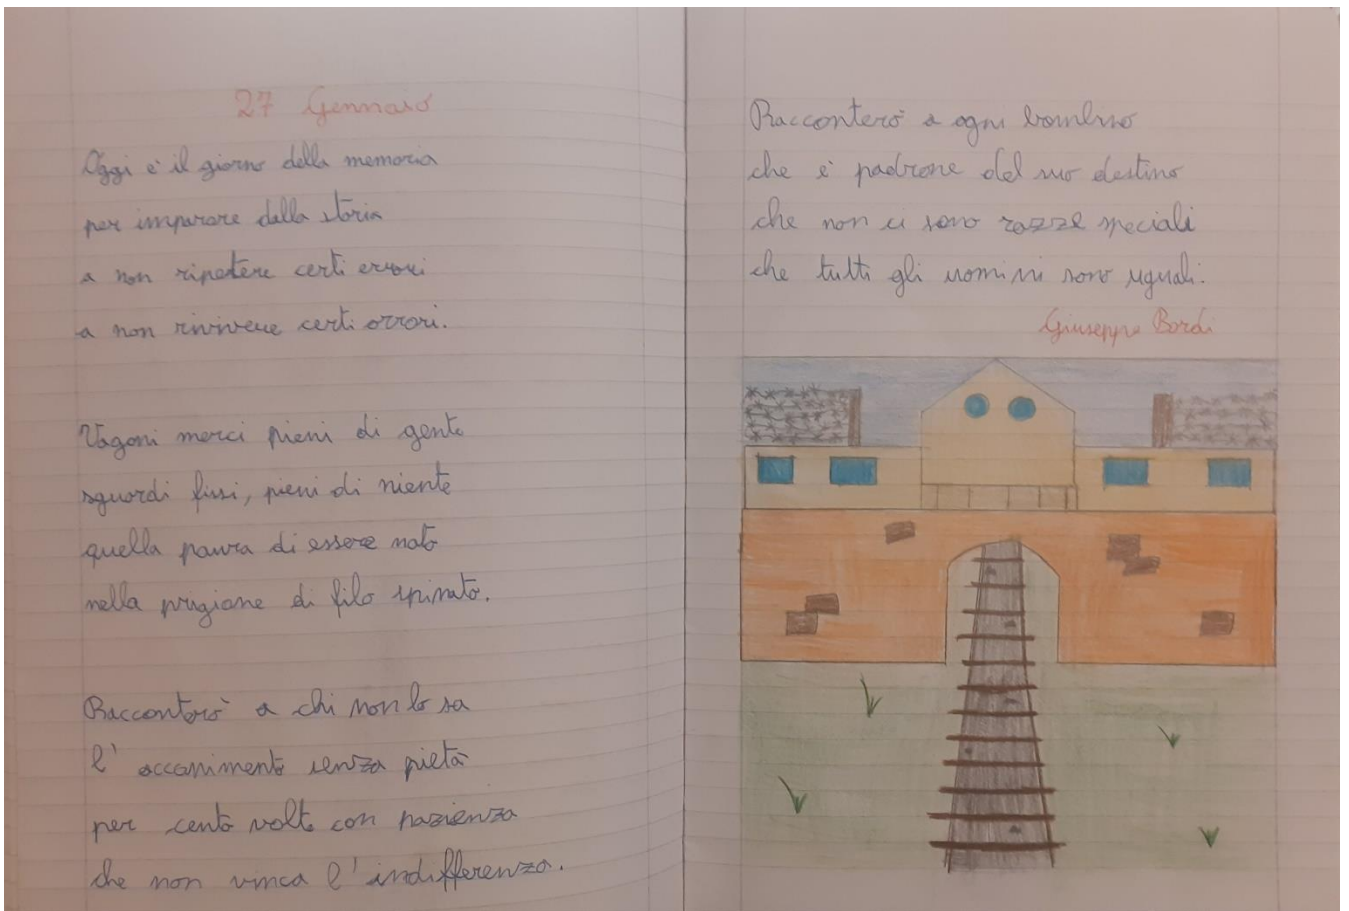 27 Gennaio
Oggi è il giorno della memoria
per imparare dalla storia
a non ripetere certi errori
a non rivivere certi orrori.
Vagoni merci pieni di gente
sguardi fissi, pieni di niente
quella paura di essere nato
nella prigione di filo spinato.
Racconterò a chi non lo sa
l'accanimento senza pietà
per cento volte con pazienza
che non vinca l'indifferenza.
Racconterò a ogni bambino
che è padrone del suo destino
che non ci sono razze speciali
che tutti gli uomini sono uguali.
Giuseppe Bordi